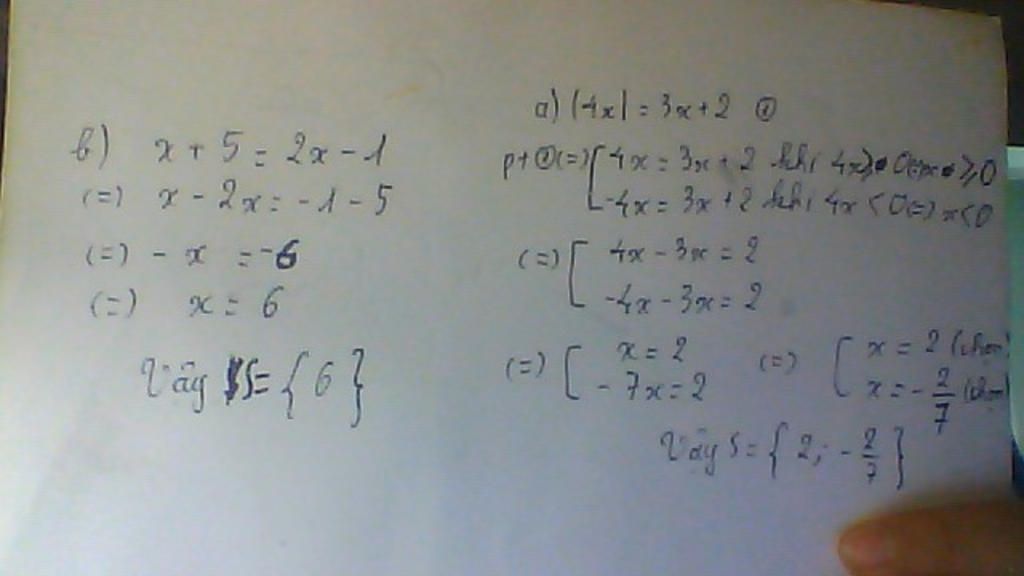 b) x + 5 = 2x - 1
(=) x - 2x = -1 - 5
(=) - x = -6
(=) x = 6
Vậy S = { 6 }
a) |4x| = 3x + 2 ①
pt ① (=) [ 4x = 3x + 2 khi 4x ≥ 0 (=) x ≥ 0
-4x = 3x + 2 khi 4x < 0 (=) x < 0
(=) [ 4x - 3x = 2
-4x - 3x = 2
(=) [ x = 2 (=) [ x = 2 (chọn)
- 7x = 2 x = - 2/7 (chọn)
Vậy S = { 2; - 2/7 }